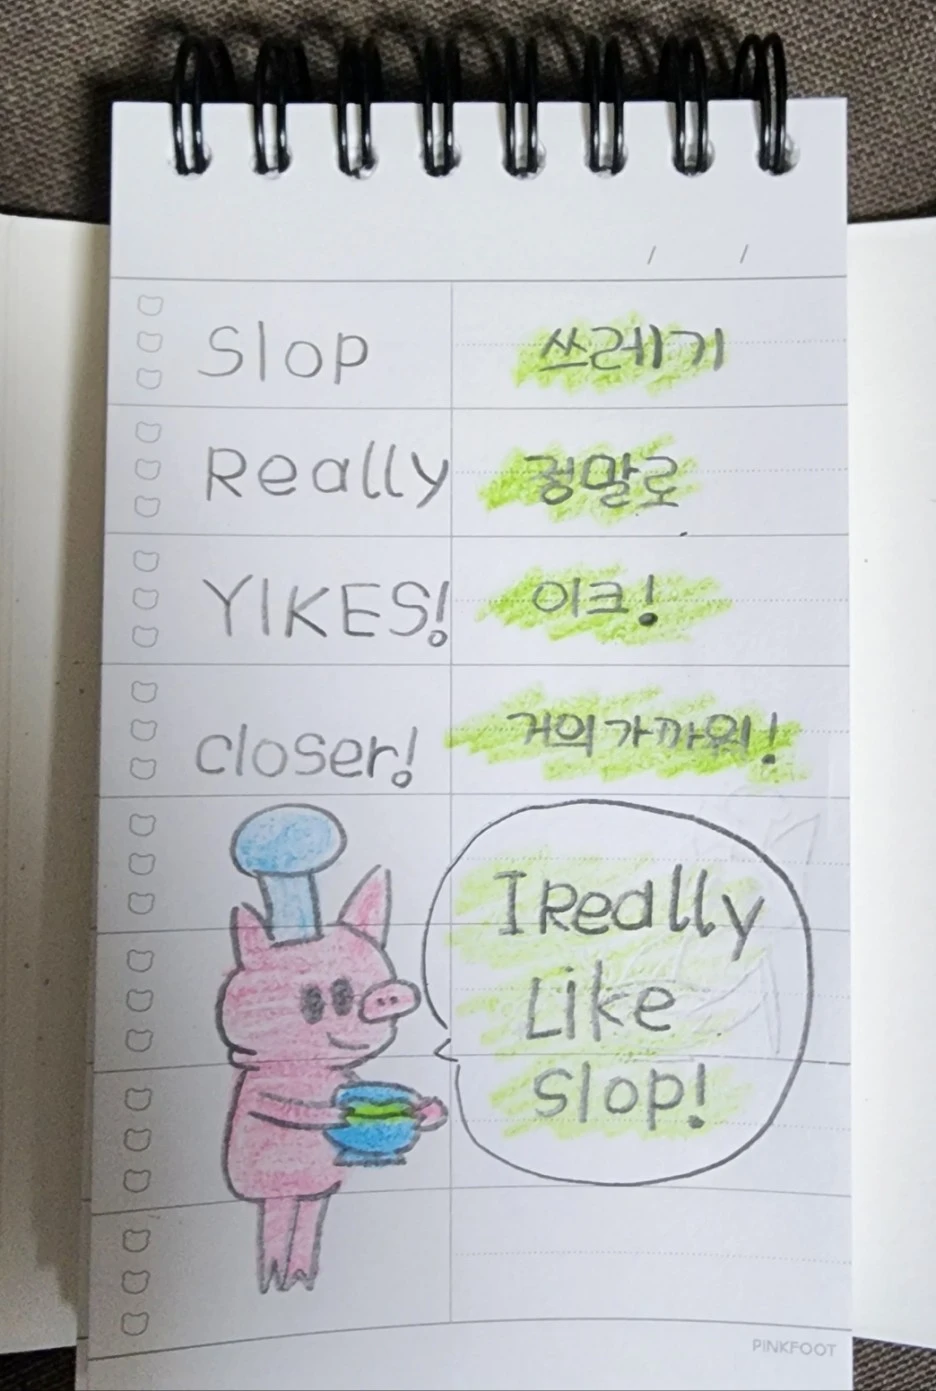 / /
Slop 쓰레기
Really 정말로
YIKES! 이크!
closer! 거의 가까워!
I Really
Like
Slop!
PINKFOOT